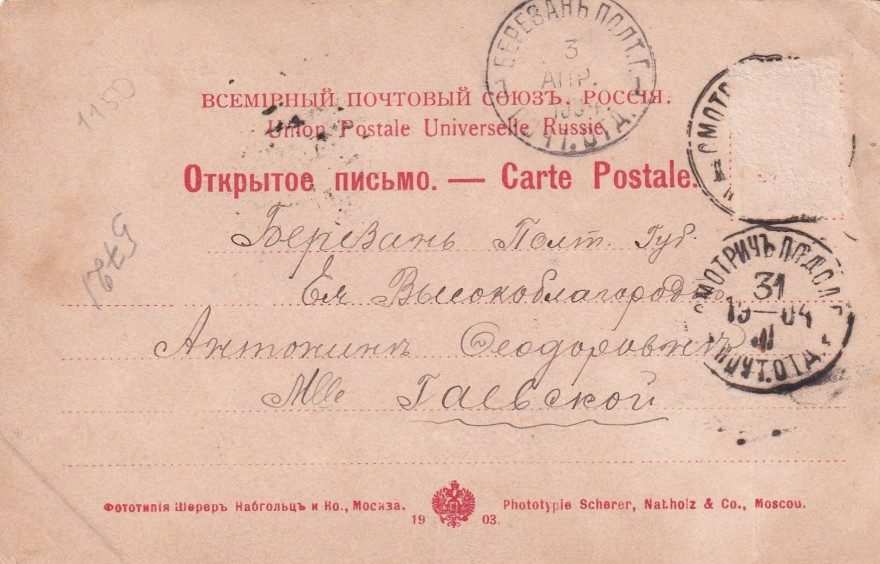 БЕРЕЗАНЬ ПОЛТ. Г.
3
АПР.
1904
ПОЧТ. ОТД.
1150
ВСЕМІРНЫЙ ПОЧТОВЫЙ СОЮЗЪ. РОССІЯ.
Union Postale Universelle Russie
СМОТР
Открытое письмо. — Carte Postale.
Березань Полт. Губ.
Ея Высокоблагородію
Антонинѣ Ѳеодоровнѣ
Mlle Гаевской
СМОТРИЧЪ ПОДОЛ.
31
19—04
III
ПОЧТ. ОТД.
Фототипія Шереръ Набгольцъ и Ко., Москва.
19 03.
Phototypie Scherer, Nabholz & Co., Moscou.